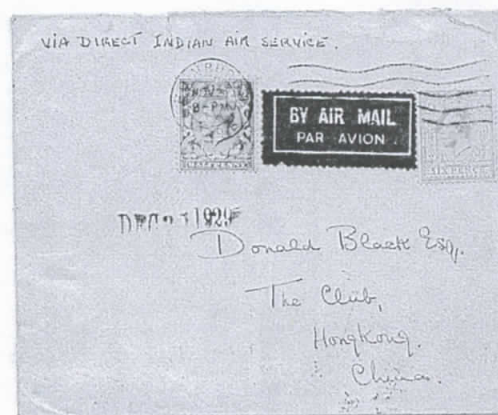 VIA DIRECT INDIAN AIR SERVICE.
NOV
8-PM
BY AIR MAIL
PAR AVION
SIXPENCE
DEC 21 1929
Donald Black Esq,
The Club,
Hongkong.
China.